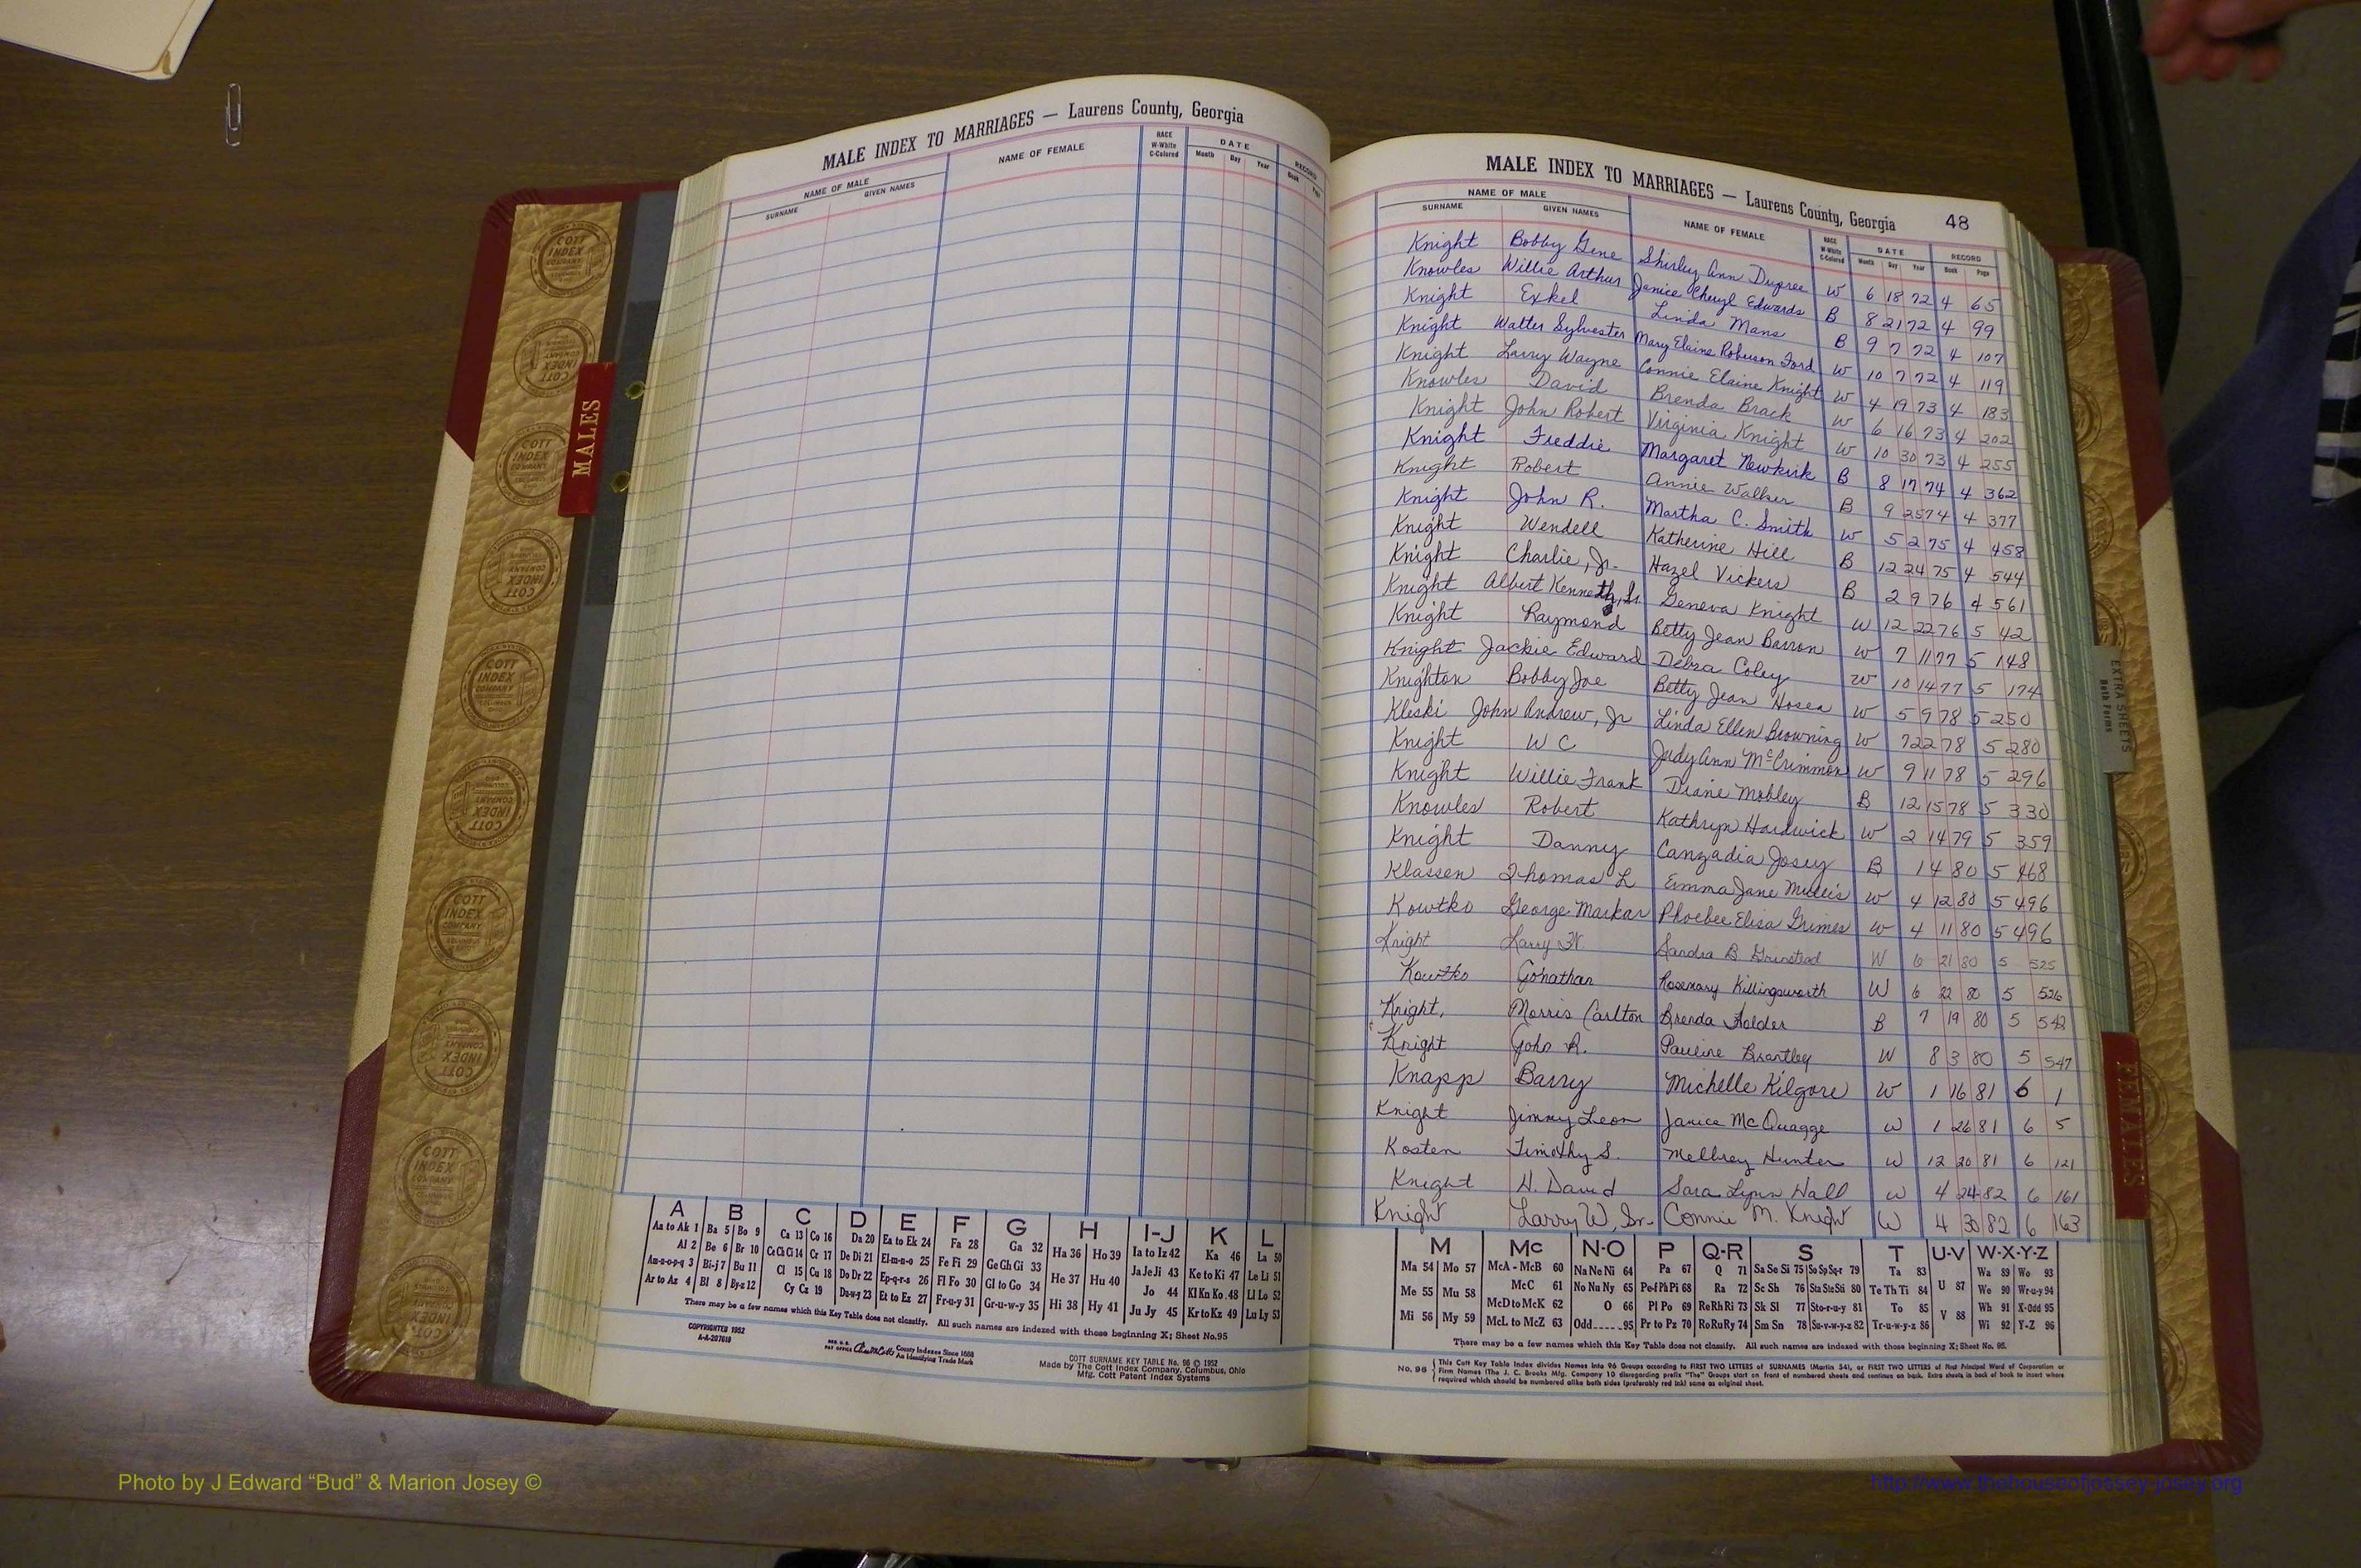 MALE INDEX TO MARRIAGES — Laurens County, Georgia
NAME OF MALE
SURNAME GIVEN NAMES
NAME OF FEMALE
RACE W-White C-Colored
DATE
Month Day Year
RECORD
Book Page
MALES
COTT INDEX COMPANY
A B C D E F G H I-J K L
Aa to Ak 1 Ba 5 Bo 9 Ca 13 Co 16 Da 20 Ea to Ek 24 Fa 28 Ga 32 Ha 36 Ho 39 Ia to Iz 42 Ka 46 La 50
Al 2 Be 6 Br 10 Ce Ch Ci 14 Cr 17 De Di 21 El-m-n-o 25 Fe Fi 29 Ge Gh Gi 33 He 37 Hu 40 Ja Je Ji 43 Ke to Ki 47 Le Li 51
Am-n-o-p-q 3 Bi-j 7 Bu 11 Cl 15 Cu 18 Do Dr 22 Ep-q-r-s 26 Fl Fo 30 Gl to Go 34 Hi 38 Hy 41 Jo 44 Kl Kn Ko 48 Ll Lo 52
Ar to Az 4 Bl 8 By-z 12 Cy Cz 19 Du-w-y 23 Et to Ez 27 Fr-u-y 31 Gr-u-w-y 35 Ju Jy 45 Kr to Kz 49 Lu Ly 53
There may be a few names which this Key Table does not classify. All such names are indexed with those beginning X; Sheet No. 95
COPYRIGHTED 1952
A-A-207610
County Indexes Since 1888
An Identifying Trade Mark
COTT SURNAME KEY TABLE No. 96 © 1952
Made by The Cott Index Company, Columbus, Ohio
Mfg. Cott Patent Index Systems
MALE INDEX TO MARRIAGES — Laurens County, Georgia 48
NAME OF MALE
SURNAME GIVEN NAMES
NAME OF FEMALE
RACE W-White C-Colored
DATE
Month Day Year
RECORD
Book Page
Knight Bobby Gene Shirley Ann Dupree W 6 18 72 4 65
Knowles Willie Arthur Janice Cheryl Edwards B 8 21 72 4 99
Knight Exkel Linda Mans B 9 7 72 4 107
Knight Walter Sylvester Mary Elaine Roberson Ford W 10 7 72 4 119
Knight Larry Wayne Connie Elaine Knight W 4 19 73 4 183
Knowles David Brenda Brack W 6 16 73 4 202
Knight John Robert Virginia Knight W 10 30 73 4 255
Knight Freddie Margaret Newkirk B 8 17 74 4 362
Knight Robert Annie Walker B 9 25 74 4 377
Knight John R. Martha C. Smith W 5 2 75 4 458
Knight Wendell Katherine Hill B 12 24 75 4 544
Knight Charlie, Jr. Hazel Vickers B 2 9 76 4 561
Knight Albert Kenneth, Sr. Geneva Knight W 12 22 76 5 42
Knight Raymond Betty Jean Barron W 7 11 77 5 148
Knight Jackie Edward Debra Coley W 10 14 77 5 174
Knighton Bobby Joe Betty Jean Hosea W 5 9 78 5 250
Kleski John Andrew, Jr Linda Ellen Browning W 7 22 78 5 280
Knight W C Judy Ann McCrimmon W 9 11 78 5 296
Knight Willie Frank Diane Mobley B 12 15 78 5 330
Knowles Robert Kathryn Hardwick W 2 14 79 5 359
Knight Danny Canzadia Josey B 1 4 80 5 468
Klassen Thomas L Emma Jane Mullis W 4 12 80 5 496
Kowtko George Markar Phoebee Elisa Grimes W 4 11 80 5 496
Knight Larry W. Sandra B Grinstead W 6 21 80 5 525
Kowtko Jonathan Rosemary Killingsworth W 6 22 80 5 526
Knight, Morris Carlton Brenda Holder B 7 19 80 5 542
Knight John R. Pauline Brantley W 8 3 80 5 547
Knapp Barry Michelle Kilgore W 1 16 81 6 1
Knight Jimmy Leon Janice McQuagge W 1 26 81 6 5
Kosten Timothy S. Mellrey Hunter W 12 20 81 6 121
Knight H. David Sara Lynn Hall W 4 24 82 6 161
Knight Larry W., Sr. Connie M. Knight W 4 30 82 6 163
M Mc N-O P Q-R S T U-V W-X-Y-Z
Ma 54 Mo 57 McA - McB 60 Na Ne Ni 64 Pa 67 Q 71 Sa Se Si 75 So Sp Sq-r 79 Ta 83 U 87 Wa 89 Wo 93
Me 55 Mu 58 McC 61 No Nu Ny 65 Pe-f Ph Pi 68 Ra 72 Sc Sh 76 Sta Ste Sti 80 Te Th Ti 84 We 90 Wr-u-y 94
McD to McK 62 O 66 Pl Po 69 Re Rh Ri 73 Sk Sl 77 Sto-r-u-y 81 To 85 V 88 Wh 91 X-Odd 95
Mi 56 My 59 McL to McZ 63 Odd 95 Pr to Pz 70 Ro Ru Ry 74 Sm Sn 78 Su-v-w-y-z 82 Tr-u-w-y-z 86 Wi 92 Y-Z 96
There may be a few names which this Key Table does not classify. All such names are indexed with those beginning X; Sheet No. 95.
No. 96 This Cott Key Table Index divides Names into 96 Groups according to FIRST TWO LETTERS of SURNAMES (Martin 54), or FIRST TWO LETTERS of First Principal Word of Corporation or
Firm Names (The J. C. Brooks Mfg. Company 10 disregarding prefix "The" Groups start on front of numbered sheets and continue on back. Extra sheets in back of book to insert where
required which should be numbered alike both sides (preferably red ink) same as original sheet.
EXTRA SHEETS
Both Forms
FEMALES
Photo by J Edward “Bud” & Marion Josey ©
http://www.thehouseofjossey-josey.org